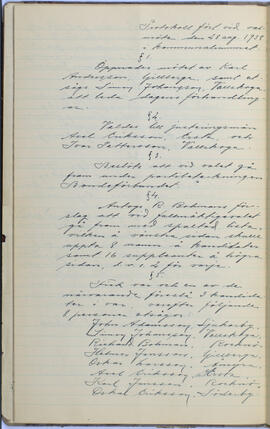 Protokoll fört vid val-
möte den 28 aug. 1938
i kommunalrummet.
§ 1.
Öppnades mötet av Karl
Andersson, Gillberga, samt
Simon Johansson, Vallskoga
att leda dagens förhandling
ar.
§ 2.
Valdes till justeringsmän
Axel Eriksson, och
Ivar Pettersson, Vallskoga.
§ 3.
Beslöts att vid valet gå
fram under partibeteckningen
Bondeförbundet.
§ 4.
Antogs R. Bohmans förs
slag att vid fullmäktigevalet
gå fram med spaltad
vilken å vänstersidan skulle
uppta 8 namn å kandidater
samt 16 suppleanter å högra
sidan, d.v.s. 2 för varje.
§ 5.
Fick var och en av de
närvarande föreslå 3 kandida
ter i var, varefter följande
8 personer
John Adamsson,
Simon Johansson, Vallskoga.
Richard Bohman,
Helmer Jansson, Gillberga.
Oskar Larsson,
Axel Eriksson
Karl Jansson,
Oskar Eriksson, Söderby